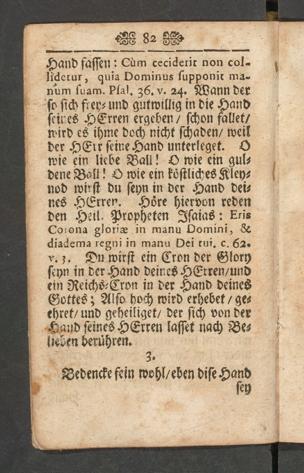 82
Hand fassen: Cùm ceciderit non col-
lidetur, quia Dominus supponit ma-
num suam. Psal. 36. v. 24. Wann der
so sich frey- und gutwillig in die Hand
seines HErren ergeben / schon fallet /
wird es ihme doch nicht schaden / weil
der HErr seine Hand unterleget. O
wie ein liebe Ball! O wie ein gul-
dene Ball! O wie ein köstliches Kley-
nod wirst du seyn in der Hand dei-
nes HErren. Höre hiervon reden
den Heil. Propheten Isaias: Eris
Corona gloriæ in manu Domini, &
diadema regni in manu Dei tui. c. 62.
v. 3. Du wirst ein Cron der Glory
seyn in der Hand deines HErren / und
ein Reichs-Cron in der Hand deines
Gottes; Also hoch wird erhebet / ge-
ehret / und geheiliget / der sich von der
Hand seines HErren lasset nach Be-
lieben berühren.
3.
Bedencke fein wohl / eben dise Hand
sey